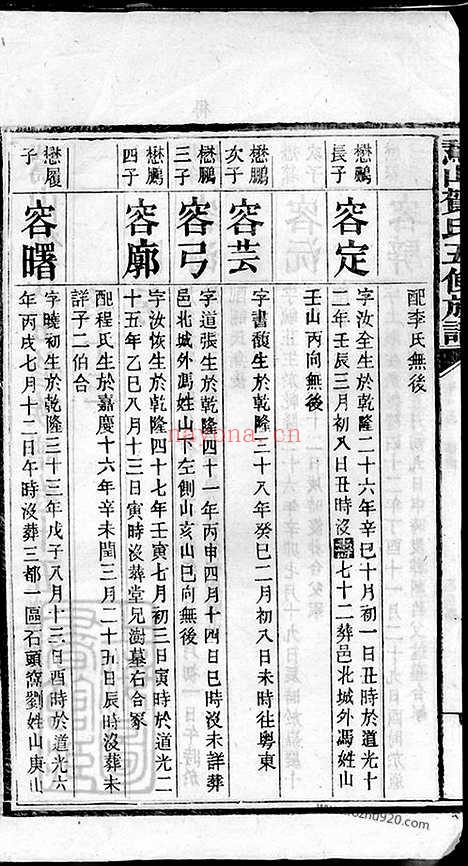 賀氏五修族譜
配李氏無後
懋鵬長子
容定
字汝全生於乾隆二十六年辛巳十月初一日丑時於道光十
二年壬辰三月初八日丑時沒壽七十二葬邑北城外馮姓山
壬山丙向無後
懋鵬次子
容芸
字書馥生於乾隆三十八年癸巳二月初八日未時往粵東
懋鵬三子
容弓
字道張生於乾隆四十一年丙申四月十四日巳時沒未詳葬
邑北城外馮姓山下左側山亥山巳向無後
懋鵬四子
容廓
字汝恢生於乾隆四十七年壬寅七月初三日寅時於道光二
十五年乙巳八月十三日寅時沒葬堂兄澍墓石合冢
配程氏生於嘉慶十六年辛未閏三月二十五日辰時沒葬未
詳子二伯合
懋履子
容曙
字曉初生於乾隆三十三年戊子八月十三日酉時於道光六
年丙戌七月十二日午時沒葬三都一區石頭窩劉姓山庚山
nayona.cn